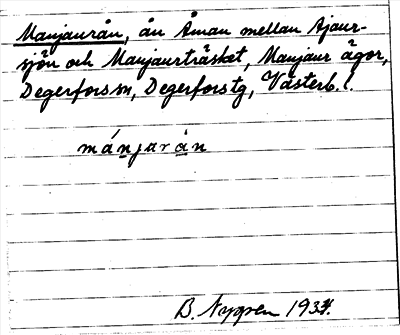 Manjaurån, ån Åman mellan Ajaur-
sjön och Manjaurträsket, Manjaur ägor,
Degerforssn, Degerforstg, Västerb. l.
mánjaràn
B. Nygren 1934.